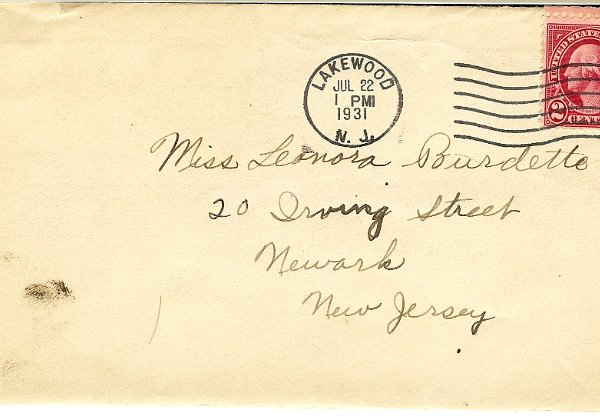 LAKEWOOD
JUL 22
1 PM
1931
N. J.
UNITED STATES
2
Miss Leonora Burdette
20 Irving Street
Newark
New Jersey